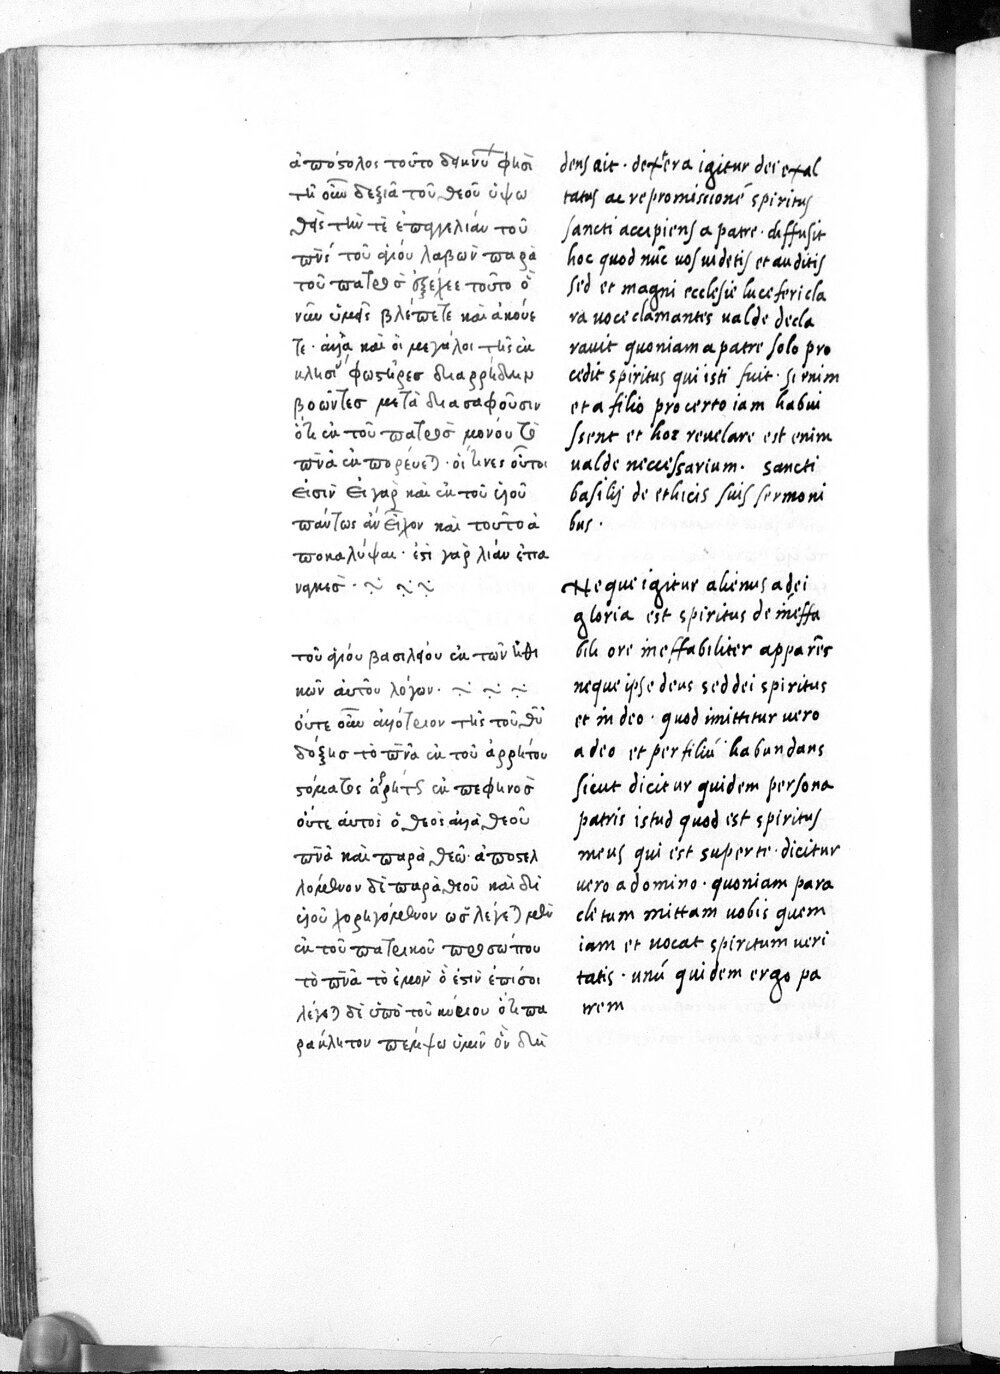 ἀπόστολος τοῦτο δεικνὺς φησὶ
τῇ οὖν δεξιᾷ τοῦ θεοῦ ὑψω
θεὶς τήν τε ἐπαγγελίαν τοῦ
πν̅ς τοῦ ἁγίου λαβὼν παρὰ
τοῦ πατρὸς ἐξέχεε τοῦτο ὃ
νῦν ὑμεῖς βλέπετε καὶ ἀκούε
τε · ἀλλὰ καὶ οἱ μεγάλοι τῆς ἐκ
κλησί φωστῆρες διαρρήδην
βοῶντες μετὰ διασαφοῦσιν
ὅτι ἐκ τοῦ πατρὸς μόνου τὸ
πν̅α ἐκπορεύε · οἵτινες οὗτοι
εἰσὶν εἰ γὰρ καὶ ἐκ τοῦ υἱοῦ
πάντως ἂν εἶχον καὶ τοῦτο ἀ
ποκαλύψαι · ἐστὶ γὰρ λίαν ἐπά
ναγκες ·
τοῦ ἁγίου βασιλείου ἐκ τῶν ἠθι
κῶν αὐτοῦ λόγων ·
οὔτε οὖν ἀλλότριον τῆς τοῦ θυ̅
δόξης τὸ πν̅α ἐκ τοῦ ἀρρήτου
στόματος ἀρρήτως ἐκπεφηνὸς
οὔτε αὐτὸς ὁ θεὸς ἀλλὰ θεοῦ
πν̅α καὶ παρὰ θεῶ · ἀποστελ
λόμενον δὲ παρὰ θεοῦ καὶ δι
υἱοῦ χορηγούμενον ὡς λέγε μὲν
ἐκ τοῦ πατρικοῦ προσώπου
τὸ πν̅α τὸ ἐμὸν ὅ ἐστιν ἐπί σοι
λέγε δὲ ὑπὸ τοῦ κυρίου ὅτι πα
ράκλητον πέμψω ὑμῖν ὃν διὰ
dens ait · dextera igitur dei exal
tatus ac repromissionē spiritus
sancti accipiens a patre · diffusit
hoc quod nūc uos uidetis et auditis
sed et magni ecclesie luceferi cla
ra uoce clamantes ualde decla
rauit quoniam a patre solo pro
cedit spiritus qui isti fuit · si enim
et a filio pro certo iam habui
ssent et hoc reuelare est enim
ualde neccessarium · sancti
basilij de ethicis suis sermoni
bus ·
Neque igitur alienus a dei
gloria est spiritus de ineffa
bili ore ineffabiliter apparēs
neque ipse deus sed dei spiritus
et in deo · quod imittitur uero
a deo et per filiū habundans
sicut dicitur quidem persona
patris istud quod est spiritus
meus qui est super te · dicitur
uero a domino · quoniam para
clitum mittam uobis quem
iam et uocat spiritum ueri
tatis · unū quidem ergo pa
trem